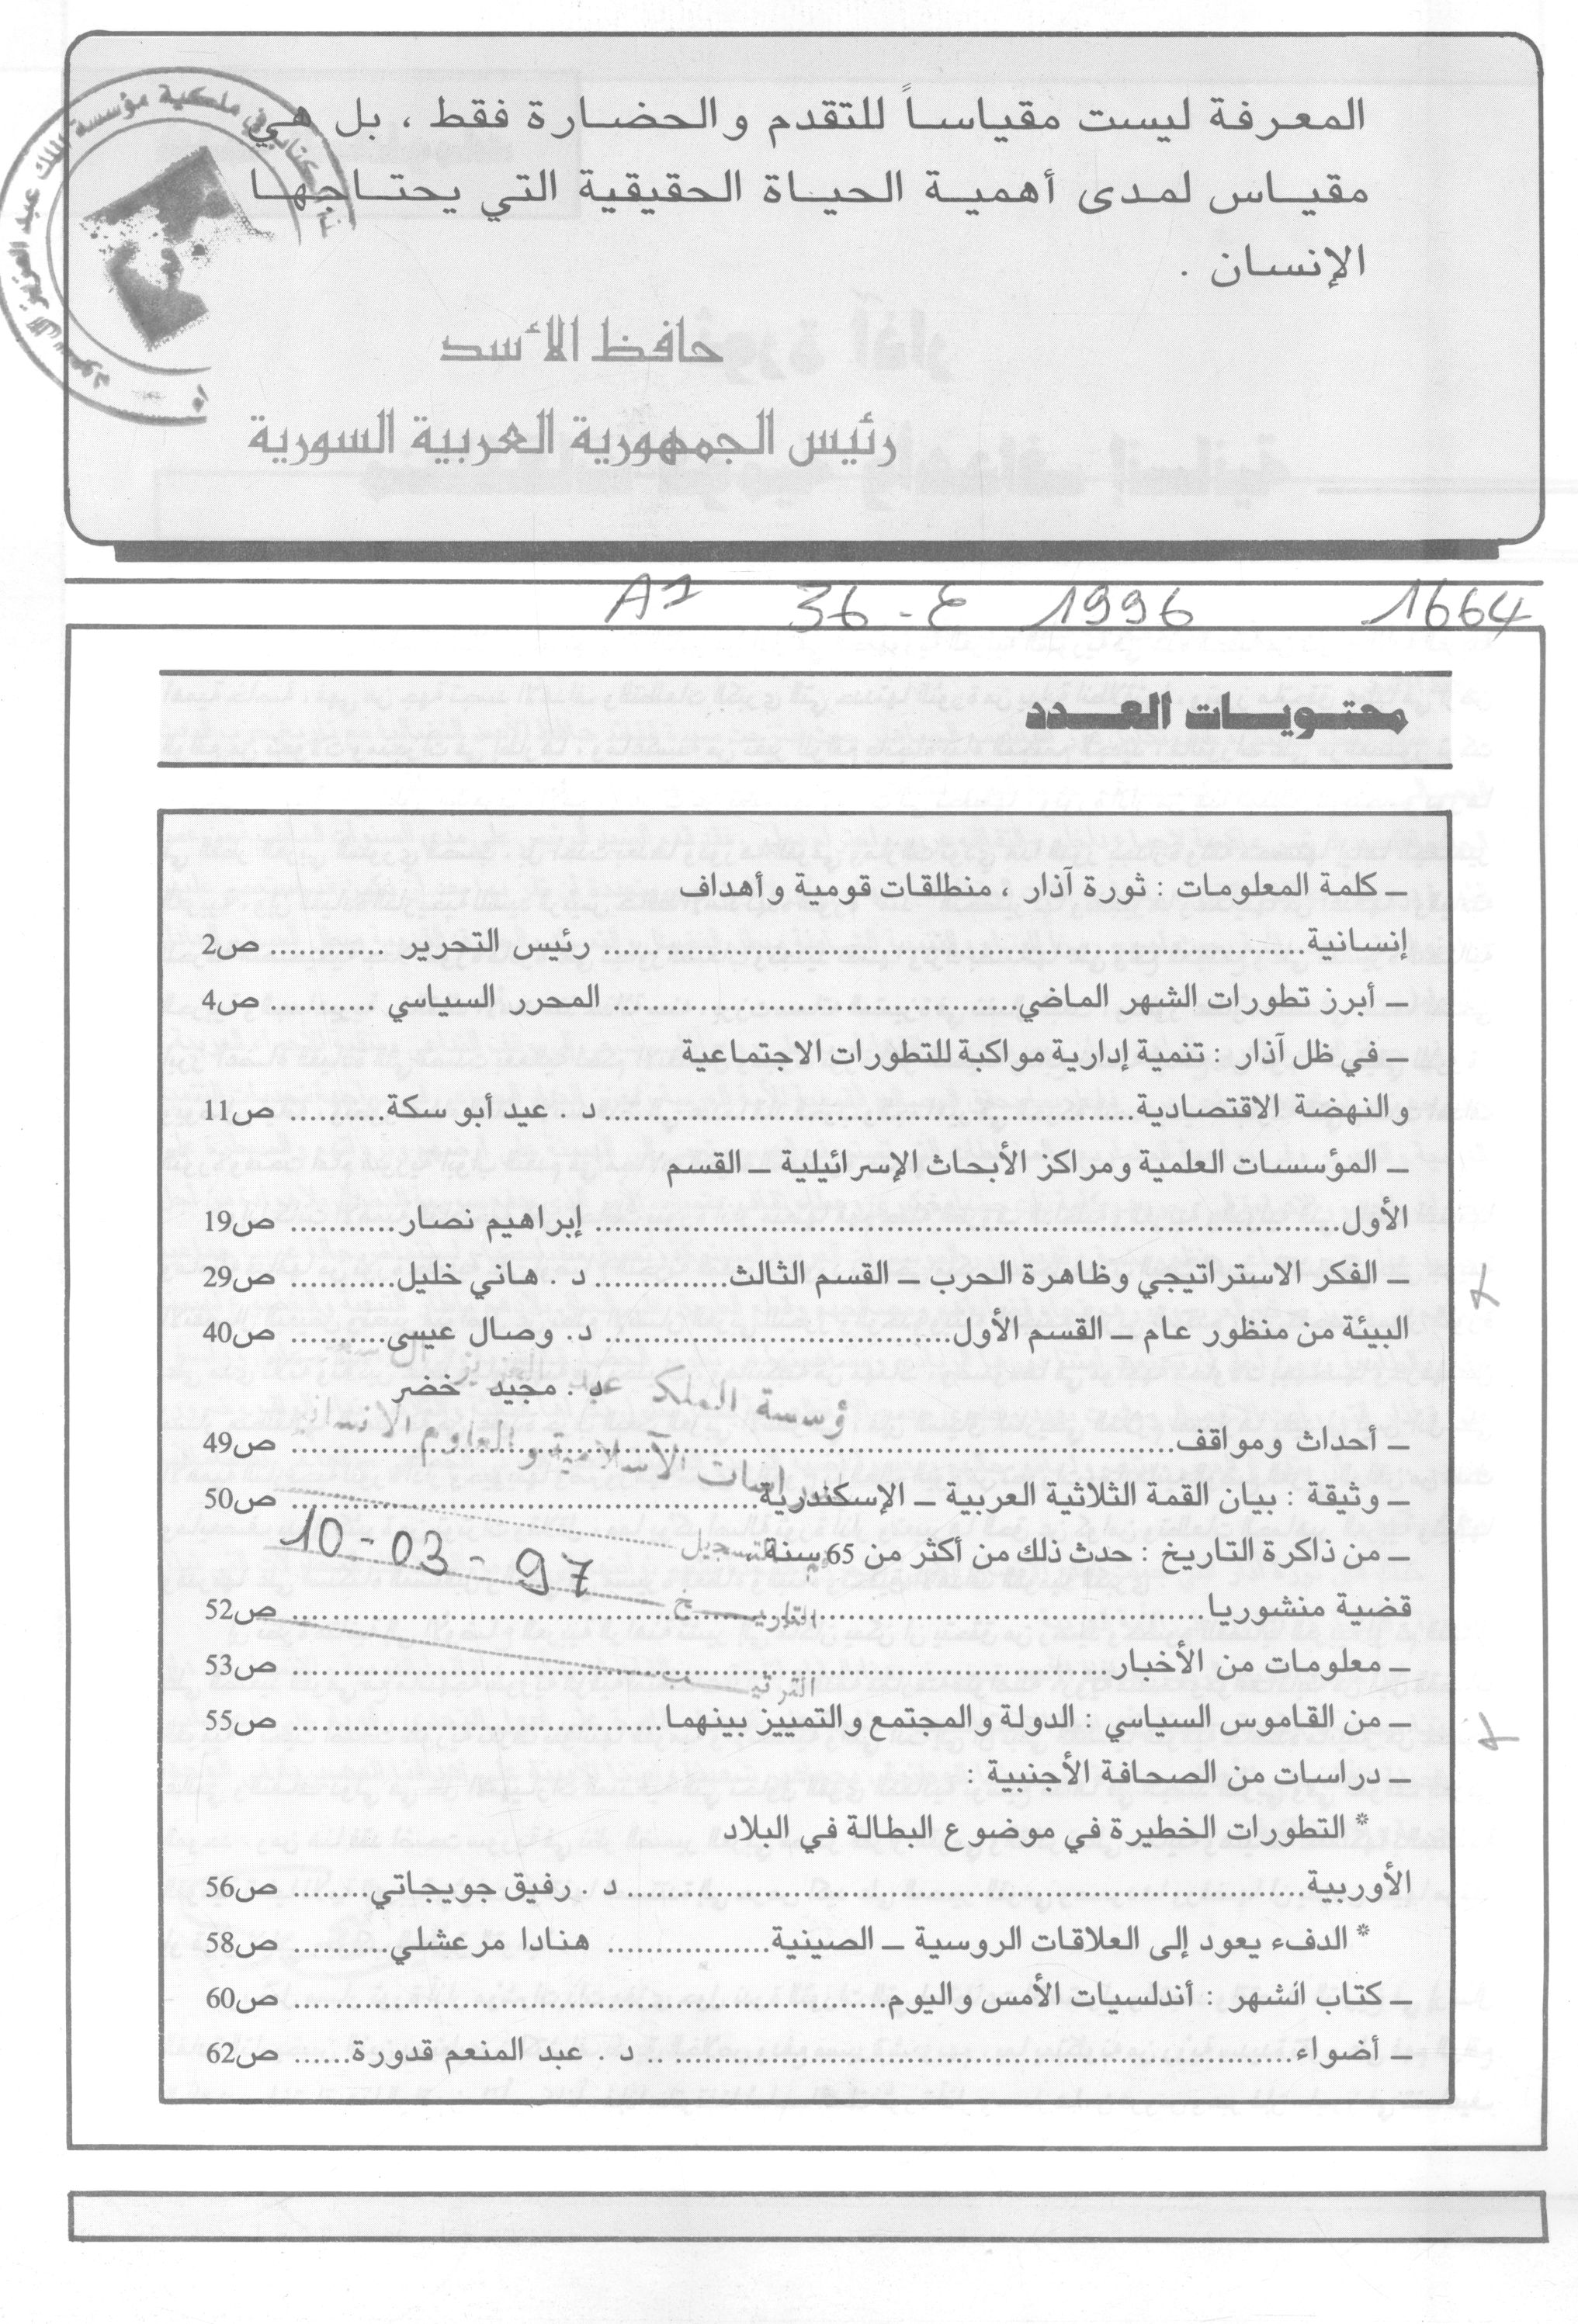 المعرفة ليست مقياساً للتقدم والحضارة فقط ، بل هي
مقياس لمدى أهمية الحياة الحقيقية التي يحتاجها
الإنسان .
حافظ الأسد
رئيس الجمهورية العربية السورية
A1 36-ع 1996 1664
محتويات العدد
ـ كلمة المعلومات : ثورة آذار ، منطلقات قومية وأهداف
إنسانية........................ رئيس التحرير ............ ص2
ـ أبرز تطورات الشهر الماضي........................ المحرر السياسي ........... ص4
ـ في ظل آذار : تنمية إدارية مواكبة للتطورات الاجتماعية
والنهضة الاقتصادية........................د . عيد أبو سكة.......... ص11
ـ المؤسسات العلمية ومراكز الأبحاث الإسرائيلية ـ القسم
الأول........................ إبراهيم نصار........... ص19
ـ الفكر الاستراتيجي وظاهرة الحرب ـ القسم الثالث..............د . هاني خليل........... ص29
البيئة من منظور عام ـ القسم الأول........................ د. وصال عيسى.......... ص40
د . مجيد خضر
ـ أحداث ومواقف........................ ص49
ـ وثيقة : بيان القمة الثلاثية العربية ـ الإسكندرية........................ ص50
ـ من ذاكرة التاريخ : حدث ذلك من أكثر من 65 سنة
قضية منشوريا........................ ص52
ـ معلومات من الأخبار........................ ص53
ـ من القاموس السياسي : الدولة والمجتمع والتمييز بينهما........................ ص55
ـ دراسات من الصحافة الأجنبية :
* التطورات الخطيرة في موضوع البطالة في البلاد
الأوربية........................د . رفيق جويجاتي........ ص56
* الدفء يعود إلى العلاقات الروسية ـ الصينية................. هنادا مرعشلي.......... ص58
ـ كتاب الشهر : أندلسيات الأمس واليوم........................ ص60
ـ أضواء........................ د . عبد المنعم قدورة...... ص62
ؤسسة الملك عبد العزيز
الدراسات الآسلامية والعلوم الانسانية
التسجيل
التاريخ 10-03-97
الترتيب